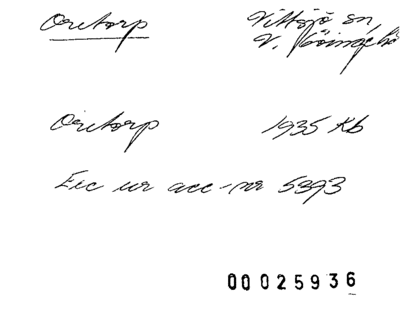 Oretorp Vittsjö sn,
V. Göinge hd
Oretorp 1935 Kb
Exc ur acc-nr 5393
00025936